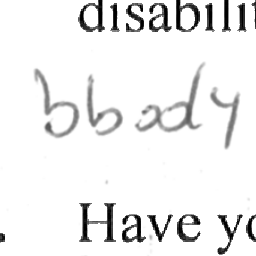 disabilit
bbody
. Have yo